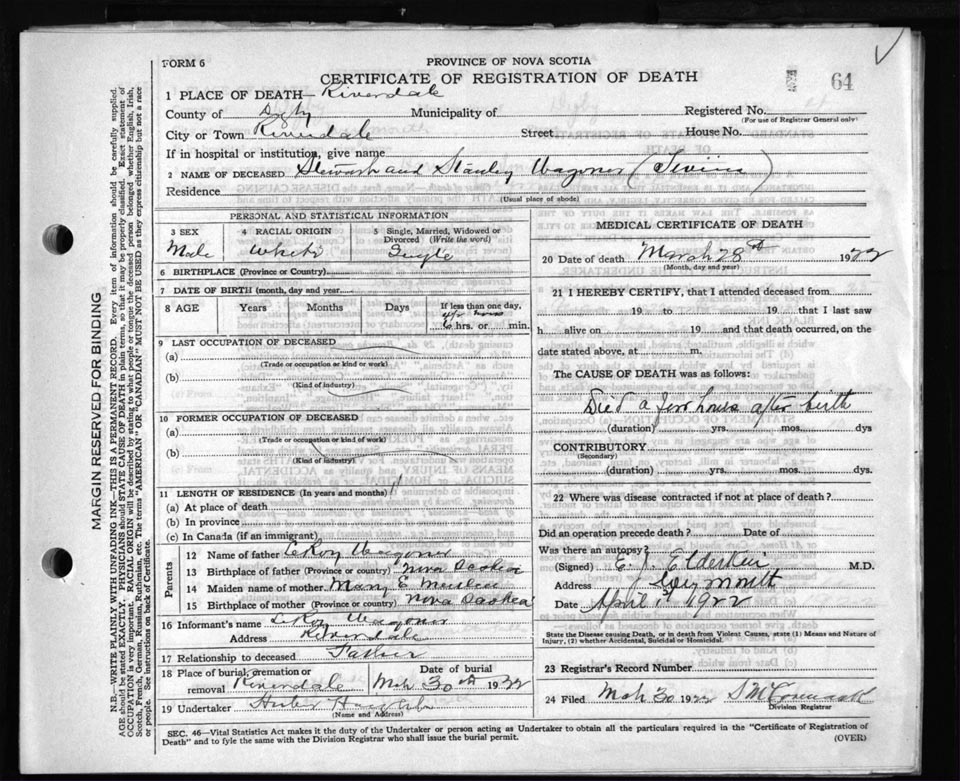 FORM 6
PROVINCE OF NOVA SCOTIA
CERTIFICATE OF REGISTRATION OF DEATH
64
1 PLACE OF DEATH— Riverdale
County of Digby Municipality of Registered No.
(For use of Registrar General only)
City or Town Riverdale Street House No.
If in hospital or institution, give name
2 NAME OF DECEASED Stewart and Stanley Wagoner (Twins)
Residence
(Usual place of abode)
PERSONAL AND STATISTICAL INFORMATION
3 SEX 4 RACIAL ORIGIN 5 Single, Married, Widowed or Divorced (Write the word)
Male White Single
6 BIRTHPLACE (Province or Country)
7 DATE OF BIRTH (month, day and year)
8 AGE Years Months Days If less than one day,
6 hrs. or min.
9 LAST OCCUPATION OF DECEASED
(a)
(Trade or occupation or kind or work)
(b)
(Kind of industry)
10 FORMER OCCUPATION OF DECEASED
(a)
(Trade or occupation or kind of work)
(b)
(Kind of industry)
11 LENGTH OF RESIDENCE (In years and months)
(a) At place of death
(b) In province
(c) In Canada (if an immigrant)
Parents
12 Name of father LeRoy Wagoner
13 Birthplace of father (Province or country) Nova Scotia
14 Maiden name of mother Mary E
15 Birthplace of mother (Province or country) Nova Scotia
16 Informant's name LeRoy Wagoner
Address Riverdale
17 Relationship to deceased Father
18 Place of burial, cremation or removal Riverdale Date of burial Mch 30th 1922
19 Undertaker
(Name and Address)
MEDICAL CERTIFICATE OF DEATH
20 Date of death March 28th 1922
(Month, day and year)
21 I HEREBY CERTIFY, that I attended deceased from
19 to 19 that I last saw
h alive on 19 and that death occurred, on
date stated above, at m.
The CAUSE OF DEATH was as follows:
Died a few hours after birth
(duration) yrs. mos. dys
CONTRIBUTORY
(Secondary)
(duration) yrs. mos. dys.
22 Where was disease contracted if not at place of death?
Did an operation precede death? Date of
Was there an autopsy?
(Signed) E. J. Elderkin M.D.
Address Weymouth
Date April 1st 1922
State the Disease causing Death, or in death from Violent Causes, state (1) Means and Nature of
Injury, (2) whether Accidental, Suicidal or Homicidal.
23 Registrar's Record Number
24 Filed Mch 30 1922
Division Registrar
SEC. 46—Vital Statistics Act makes it the duty of the Undertaker or person acting as Undertaker to obtain all the particulars required in the "Certificate of Registration of
Death" and to fyle the same with the Division Registrar who shall issue the burial permit.
(OVER)
MARGIN RESERVED FOR BINDING
N.B.—WRITE PLAINLY WITH UNFADING INK—THIS IS A PERMANENT RECORD. Every item of information should be carefully supplied.
AGE should be stated EXACTLY. PHYSICIANS should STATE CAUSE OF DEATH in plain terms, so that it may be properly classified. Exact statement of
OCCUPATION is very important. RACIAL ORIGIN will be described by stating to what people or tongue the deceased person belonged whether English, Irish,
Scotch, French, German, Russian, Ruthenian, etc. The terms "AMERICAN" OR "CANADIAN" MUST NOT BE USED as they express citizenship but not a race
or people. See instructions on back of Certificate.